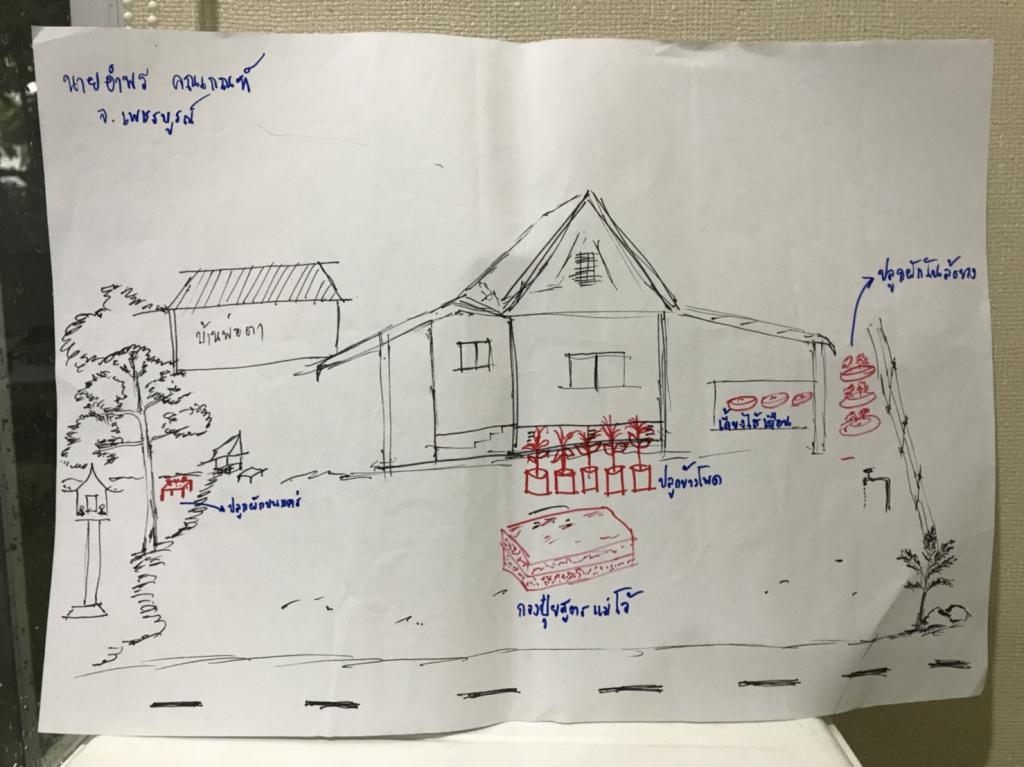 นายอำพร คณเกณฑ์
จ.เพชรบูรณ์
ปลูกผักในล้อยาง
บ้านพ่อตา
เลี้ยงไส้เดือน
ปลูกข้าวโพด
ปลูกผักบนแคร่
กองปุ๋ยสูตรแม่โจ้